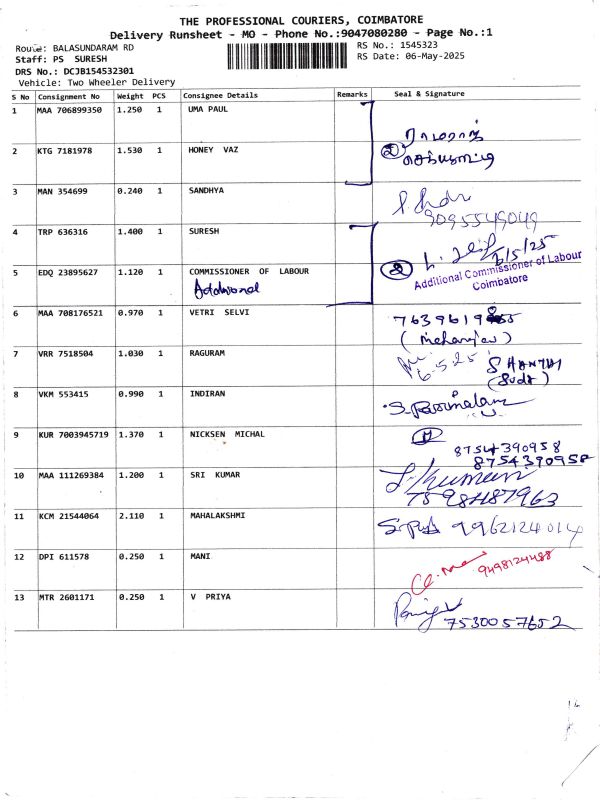 THE PROFESSIONAL COURIERS, COIMBATORE
Delivery Runsheet - MO - Phone No.:9047080280 - Page No.:1
Route: BALASUNDARAM RD
RS No.: 1545323
Staff: PS SURESH
RS Date: 06-May-2025
DRS No.: DCJB154532301
Vehicle: Two Wheeler Delivery
S No Consignment No Weight PCS Consignee Details Remarks Seal & Signature
1 MAA 706899350 1.250 1 UMA PAUL
2 KTG 7181978 1.530 1 HONEY VAZ 2
3 MAN 354699 0.240 1 SANDHYA
9095549049
4 TRP 636316 1.400 1 SURESH
6/5/25
5 EDQ 23895627 1.120 1 COMMISSIONER OF LABOUR 2
Additional
Additional Commissioner of Labour
Coimbatore
6 MAA 708176521 0.970 1 VETRI SELVI
7 VRR 7518504 1.030 1 RAGURAM
6-5-25
SHANTHI
8 VKM 553415 0.990 1 INDIRAN
9 KUR 7003945719 1.370 1 NICKSEN MICHAL
8754390958
8754390958
10 MAA 111269384 1.200 1 SRI KUMAR
7598487963
11 KCM 21544064 2.110 1 MAHALAKSHMI
9962124014
12 DPI 611578 0.250 1 MANI
9498124488
13 MTR 2601171 0.250 1 V PRIYA
7530057652